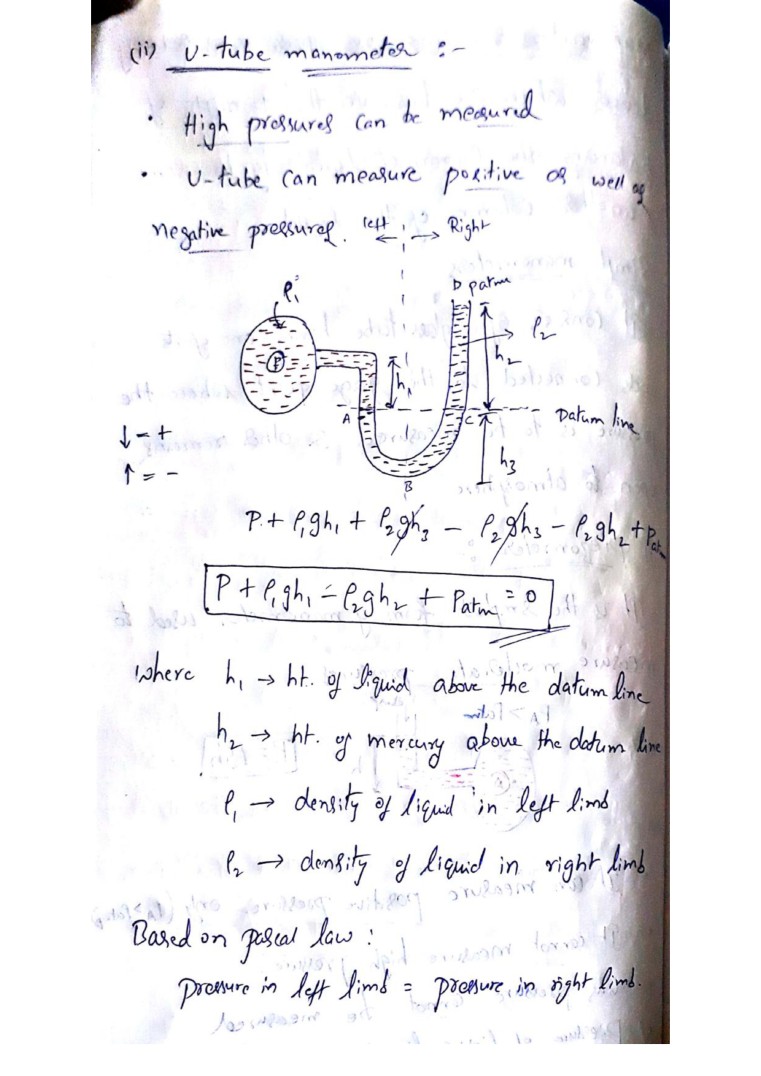 (ii) U-tube manometer :-
• High pressures can be measured
• U-tube can measure positive as well as
negative pressures.
left ← → Right
ρ₁
D patm
P
ρ₂
h₁
h₂
A
C
Datum line
↓ = +
↑ = -
h₃
B
P + ρ₁gh₁ + ρ₂gh₃ - ρ₂gh₃ - ρ₂gh₂ + Patm
P + ρ₁gh₁ - ρ₂gh₂ + Patm = 0
where h₁ → ht. of liquid above the datum line
h₂ → ht. of mercury above the datum line
ρ₁ → density of liquid in left limb
ρ₂ → density of liquid in right limb
Based on pascal law :
pressure in left limb = pressure in right limb.